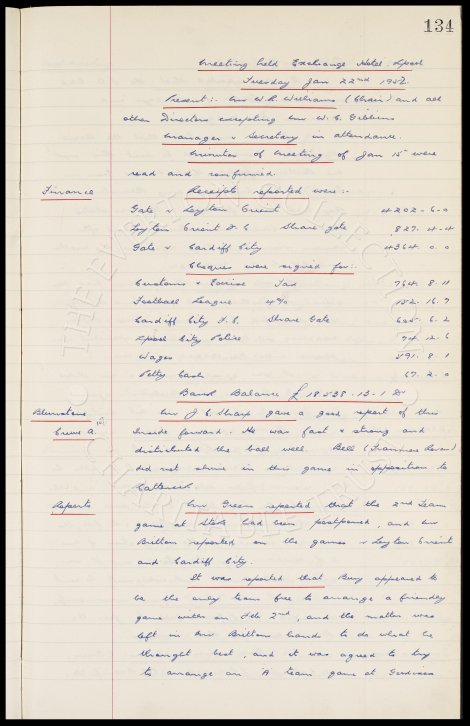 134
Meeting held Exchange Hotel L'pool
Tuesday Jan 22nd 1952.
Present:- Mr W.R. Williams (Chair) and all
other Directors excepting Mr W.C. Gibbins
Manager & Secretary in attendance.
Minutes of Meeting of Jan 15 were
read and confirmed.
Finance Receipts reported were:-
Gate v Leyton Orient 4202-6-0
Leyton Orient F.C. Share gate 827-4-4
Gate v Cardiff City 4364 0.0
Cheques were signed for:-
Customs & Excise Tax 764.8.11
Football League 4% 152.16.7
Cardiff City F.C. Share Gate 625.6.2
L'pool City Police 74.12.6
Wages 591.8.1
Petty Cash 67.2.0
Bank Balance £18538-13-1 Dr
Blunstone Mr J.C. Sharp gave a good report of this
Crewe A. inside forward. He was fast & strong and
distributed the ball well. Bell (Tranmere Rovers)
did not shine in this game in opposition to
Reports Mr Green reported that the 2nd Team
game at Stoke had been postponed, and Mr
Britton reported on the games v Leyton Orient
and Cardiff City.
It was reported that Bury appeared to
be the only team free to arrange a friendly
game with on Feb 2nd, and the matter was
left in Mr Brittons hands to do what he
thought best, and it was agreed to try
to arrange an 'A' team game at Goodison
THE EVERTON COLLECTION
CHARITABLE TRUST